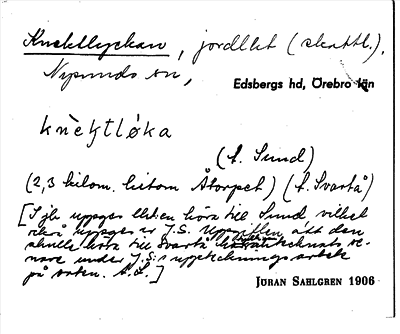 Knektlyckan, jordlht (skattl.),
Nysunds sn,
Edsbergs hd, Örebro län
knèktløka
(f. Sund)
(2,3 kilom. hitom Åtorpet) (f. Svartå)
[I jb uppges höra till Sund, vilket
uppges av J.S. Uppgiften, att den
skulle höra till Svartå har antecknats se-
nare under J.S:s uppteckningsarbete
på orten. A.L.]
JÖRAN SAHLGREN 1906